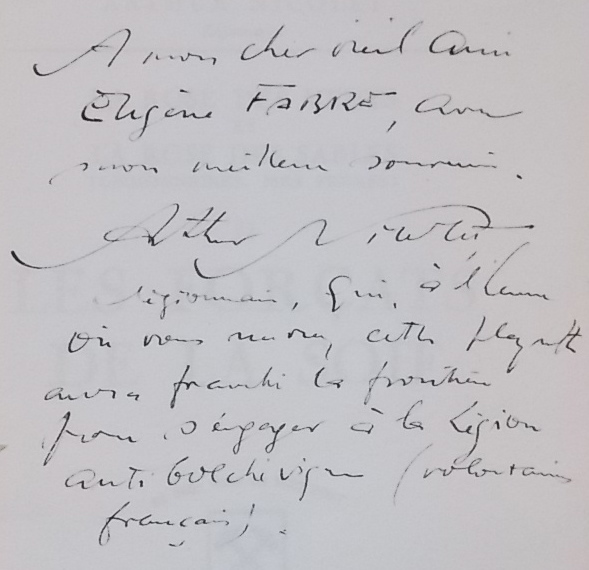 A mon cher vieil ami
Eugène FABRE, avec
mon meilleur souvenir.
Arthur Nicolet
légionnaire, qui, à l'heure
où vous lirez cette
aura franchi la frontière
pour s'engager à la Légion
antibolchévique (volontaires
français).
LES FORÇATS
DE LA